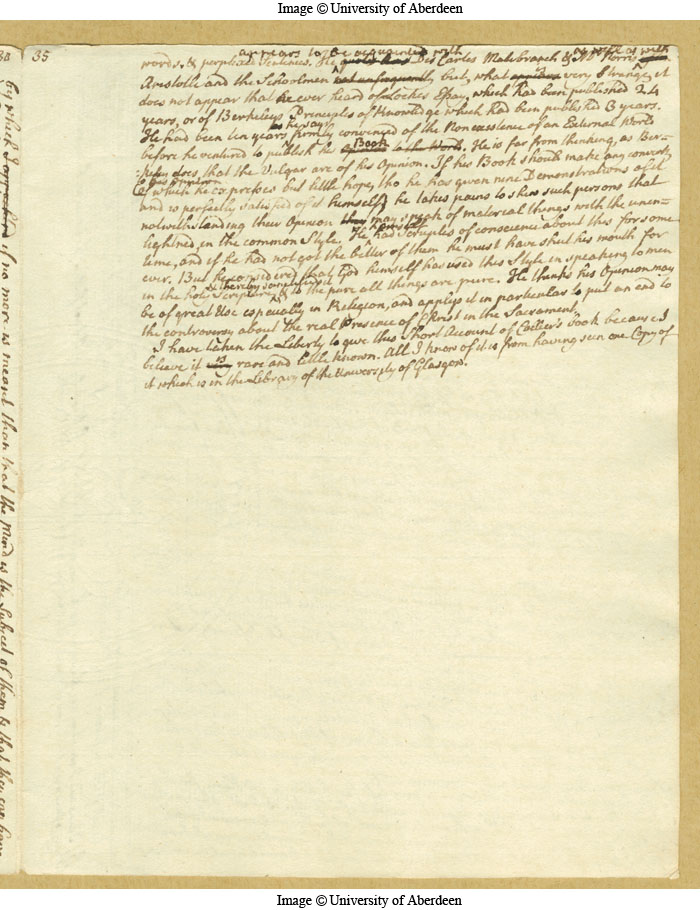 Image © University of Aberdeen
35
appears to be acquainted with
as well as with
words, & perplexed Sentences. He quotes Des Cartes Malebranch & Mr Norris
Aristotle and the Schoolmen not unfrequently, but, what very Strange, it
does not appear that he ever heard of Lockes Essay, which had been published 24
years, or of Berkeleys Principles of Knowledge which had been published 3 years.
he says
He had been ten years firmly convinced of the Nonexistence of an External World
Book
before he ventured to publish his to the World. He is far from thinking, as Ber-
:keley does, that the Vulgar are of his Opinion. If his Book should make any converts
to his Opinion
of which he expresses but little hope, tho he has given nine Demonstrations of it
and is perfectly satisfied of it himself he takes pains to shew such persons that
notwithstanding their Opinion they may speak of material things with the unen-
himself
lightned, in the common Style. He had Scruples of conscience about this for some
time, and if he had not got the better of them he must have shut his mouth for
ever. But he considered that God himself has used this Style in speaking to men
& thereby sanctified it
in the holy Scripture & to the pure all things are pure. He thinks his Opinion may
be of great Use especially in Religion, and applys it in particular to put an end to
the controversy about the real Presence of Christ in the Sacrament.
I have taken the Liberty to give this Short Account of Colliers book because I
is
believe it rare and little known. All I know of it is from having seen one Copy of
it which is in the Library of the University of Glasgow.
by which I if no more is meant than that the Mind is the Subject of them & that they can have
Image © University of Aberdeen